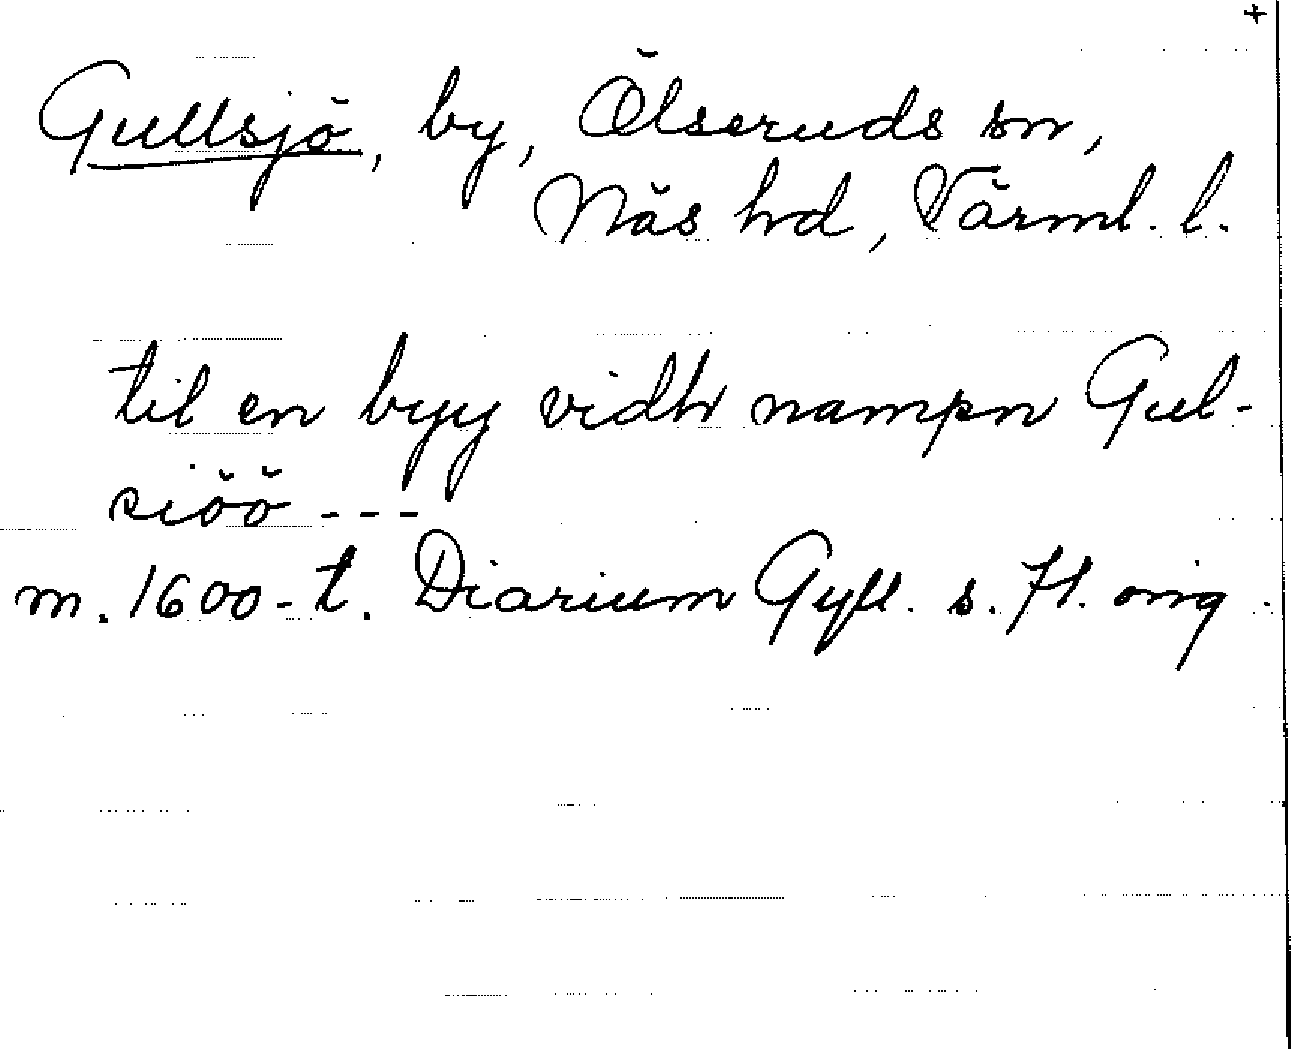 +
Gullsjö, by, Ölseruds sn,
Näs hd, Värml. l.
til en byy vidh nampn Gul-
siöö ---
m. 1600-t. Diarium Gyll. s. 71. orig.